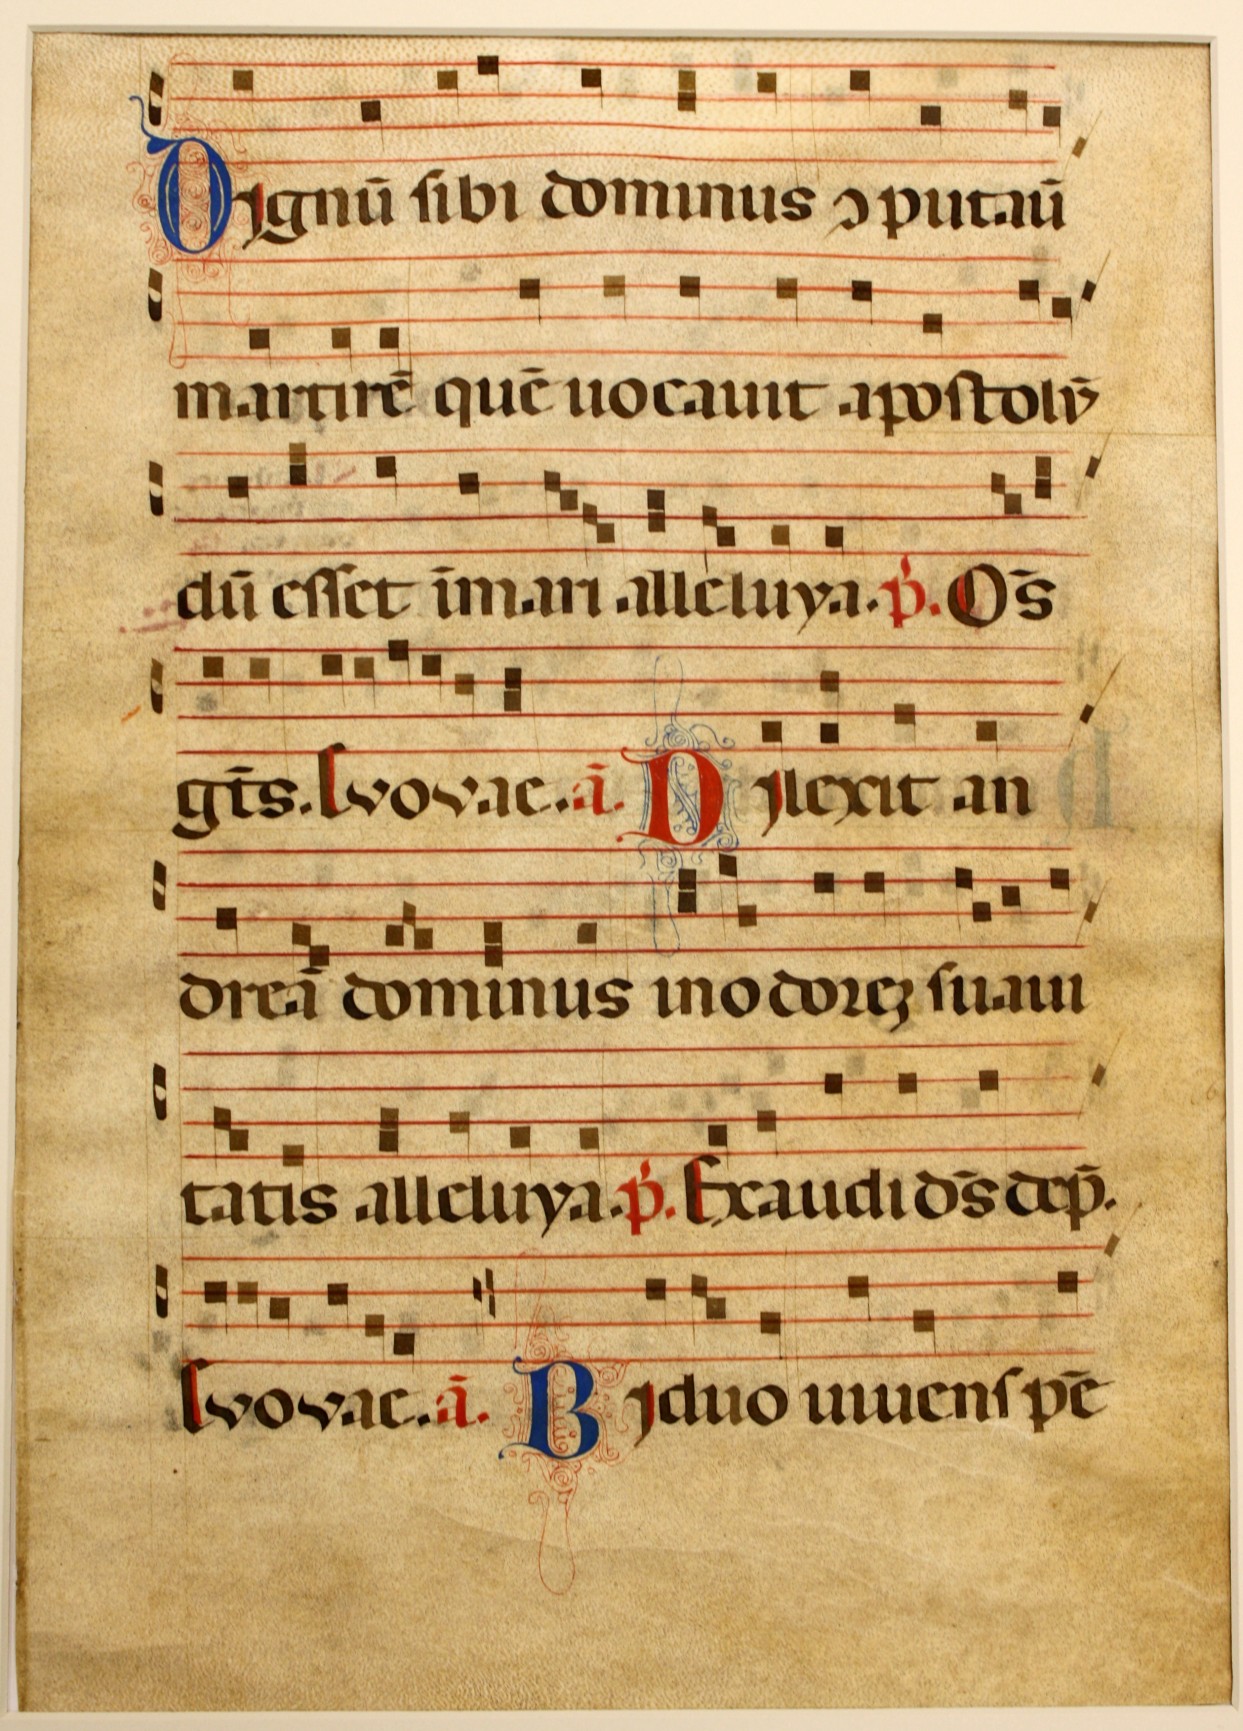 Dignū sibi dominus ɔputauī
martirē quē uocauit apostolū
dū esset ī mari alleluya. p̄. Om̄s
gēts. Evovae. ā. Dilexit an
dreā dominus in odorēꝫ suaui
tatis alleluya. p̄. Exaudi d̄s dep̄.
Evovae. ā. Biduo uiuens pē